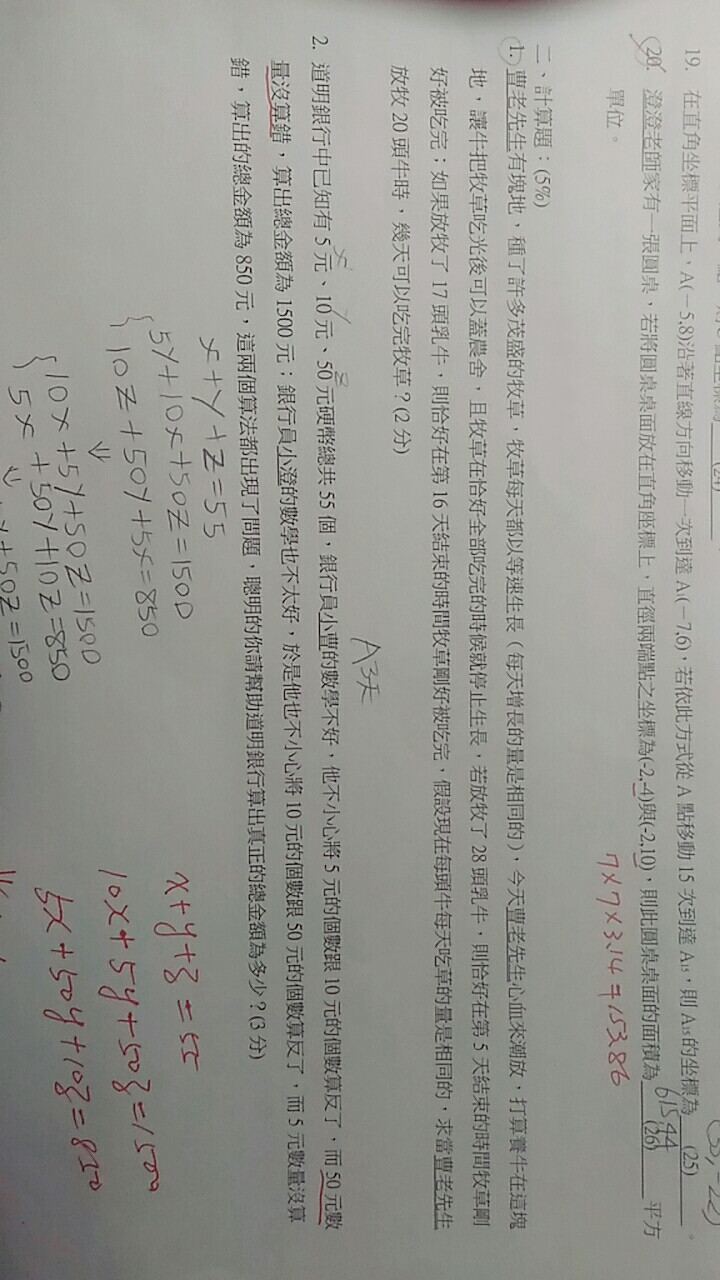 (25)
19. 在直角坐標平面上，A(－5,8)沿著直線方向移動一次到達 A₁(－7,6)，若依此方式從 A 點移動 15 次到達 A₁₅，則 A₁₅的坐標為 (25) 。
20. 澄澄老師家有一張圓桌，若將圓桌桌面放在直角座標上，直徑兩端點之坐標為(-2,-4)與(-2,10)，則此圓桌桌面的面積為 (26) 平方
單位。
7×7×3.14=153.86
二、計算題：(5%)
1. 曹老先生有塊地，種了許多茂盛的牧草，牧草每天都以等速生長（每天增長的量是相同的），今天曹老先生心血來潮放，打算養牛在這塊
地，讓牛把牧草吃光後可以蓋農舍，且牧草在恰好全部吃完的時候就停止生長，若放牧了 28 頭乳牛，則恰好在第 5 天結束的時間牧草剛
好被吃完；如果放牧了 17 頭乳牛，則恰好在第 16 天結束的時間牧草剛好被吃完，假設現在每頭牛每天吃草的量是相同的，求當曹老先生
放牧 20 頭牛時，幾天可以吃完牧草？(2 分)
A 3天
x y z
2. 道明銀行中已知有 5 元、10 元、50 元硬幣總共 55 個，銀行員小曹的數學不好，他不小心將 5 元的個數跟 10 元的個數算反了，而 50 元數
量沒算錯，算出總金額為 1500 元；銀行員小澄的數學也不太好，於是他也不小心將 10 元的個數跟 50 元的個數算反了，而 5 元數量沒算
錯，算出的總金額為 850 元，這兩個算法都出現了問題，聰明的你請幫助道明銀行算出真正的總金額為多少？(3 分)
x+y+z=55
5y+10x+50z=1500
10z+50y+5x=850
⇓
10x+5y+50z=1500
5x+50y+10z=850
⇓
+50z=1500
x+y+z=55
10x+5y+50z=1500
5x+50y+10z=850